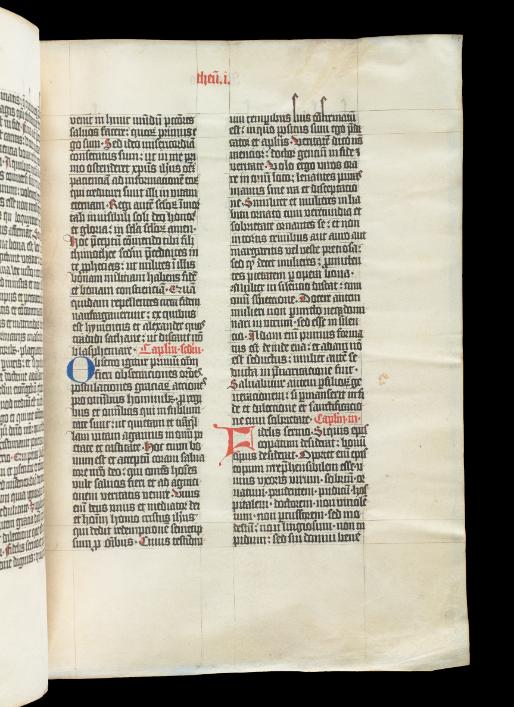 theū.i.
venit in hunc mūdū pctōres
salvos facere: quorum primus e
go sum. Sed ideo misericordiā
consecutus sum: ut in me pri
mo ostenderet xpūs ihūs oēm
patienciā ad informacionē eorū
qui credituri sunt illi in vitam
eternam. Regi autē seculorum īmor
tali invisibili soli deo honor
et gloria: in secula seculorum amen.
Hoc p̄ceptū cōmendo tibi fili
thimothee: secūm p̄cedentes in
te pphecias: ut milites in illis
bonam militiam habens fidē
et bonam conscienciā. Quā
quidam repellentes circa fidem
naufragaverunt: ex quibus
est hymeneus et alexander quos
tradidi sathane: ut discant nō
blasphemare. Caplm.secūm.
Obsecro igitur primū oīm
fieri obsecrationes orōes
postulationes gratiarū actiones
pro omnibus hominibus: p regi
bus et omnibus qui in sublimi
tate sunt: ut quietam et trāquil
lam vitam agamus in omni pie
tate et castitate. Hoc enim bo
num est et acceptū coram salva
tore nr̄o deo: qui omēs hoīes
vult salvos fieri et ad agniti
onem veritatis venire. Unus
enī deus unus et mediator dei
et hoīm homo cristus ihūs:
qui dedit redemptionē semetip
sum p oībus. Cuius testimoni
um temporibus suis cōfirmatū
est: in quo positus sum ego pdi
cator et aplūs. Veritatē dico nō
mencior: doctor gencium in fide et
veritate. Volo ergo viros ora
re in omni loco: levantes puras
manus sine ira et disceptatio
ne. Similiter et mulieres in ha
bitu ornato cum verecundia et
sobrietate ornantes se: et non
in tortis crinibus aut auro aut
margaritis vel veste preciosa:
sed qd decet mulieres: pmitten
tes pietatem p opera bona.
Mulier in silencio discat: cum
omī subiectione. Docere autem
mulieri non pmitto neque domi
nari in virum: sed esse in silen
cio. Adam enī primus forma
tus est deinde eva: et adam nō
est seductus: mulier autē se
ducta in p̄varicatione fuit.
Salvabitur autem p filiorum ge
nerationem: si pmanserit in fi
de et dilectione et sanctificatio
ne cum sobrietate. Caplm.iii.
Fidelis sermo. Si quis epis
copatum desiderat: bonū
opus desiderat. Oportet enī epis
copum irrep̄hensibilem esse: u
nius uxoris virum. sobriū. or
natum. prudentem. pudicū. hos
pitalem. doctorem. non vinole
tum. non percussorem: sed mo
destū: non litigiosum. non cu
pidum: sed sui domui bene